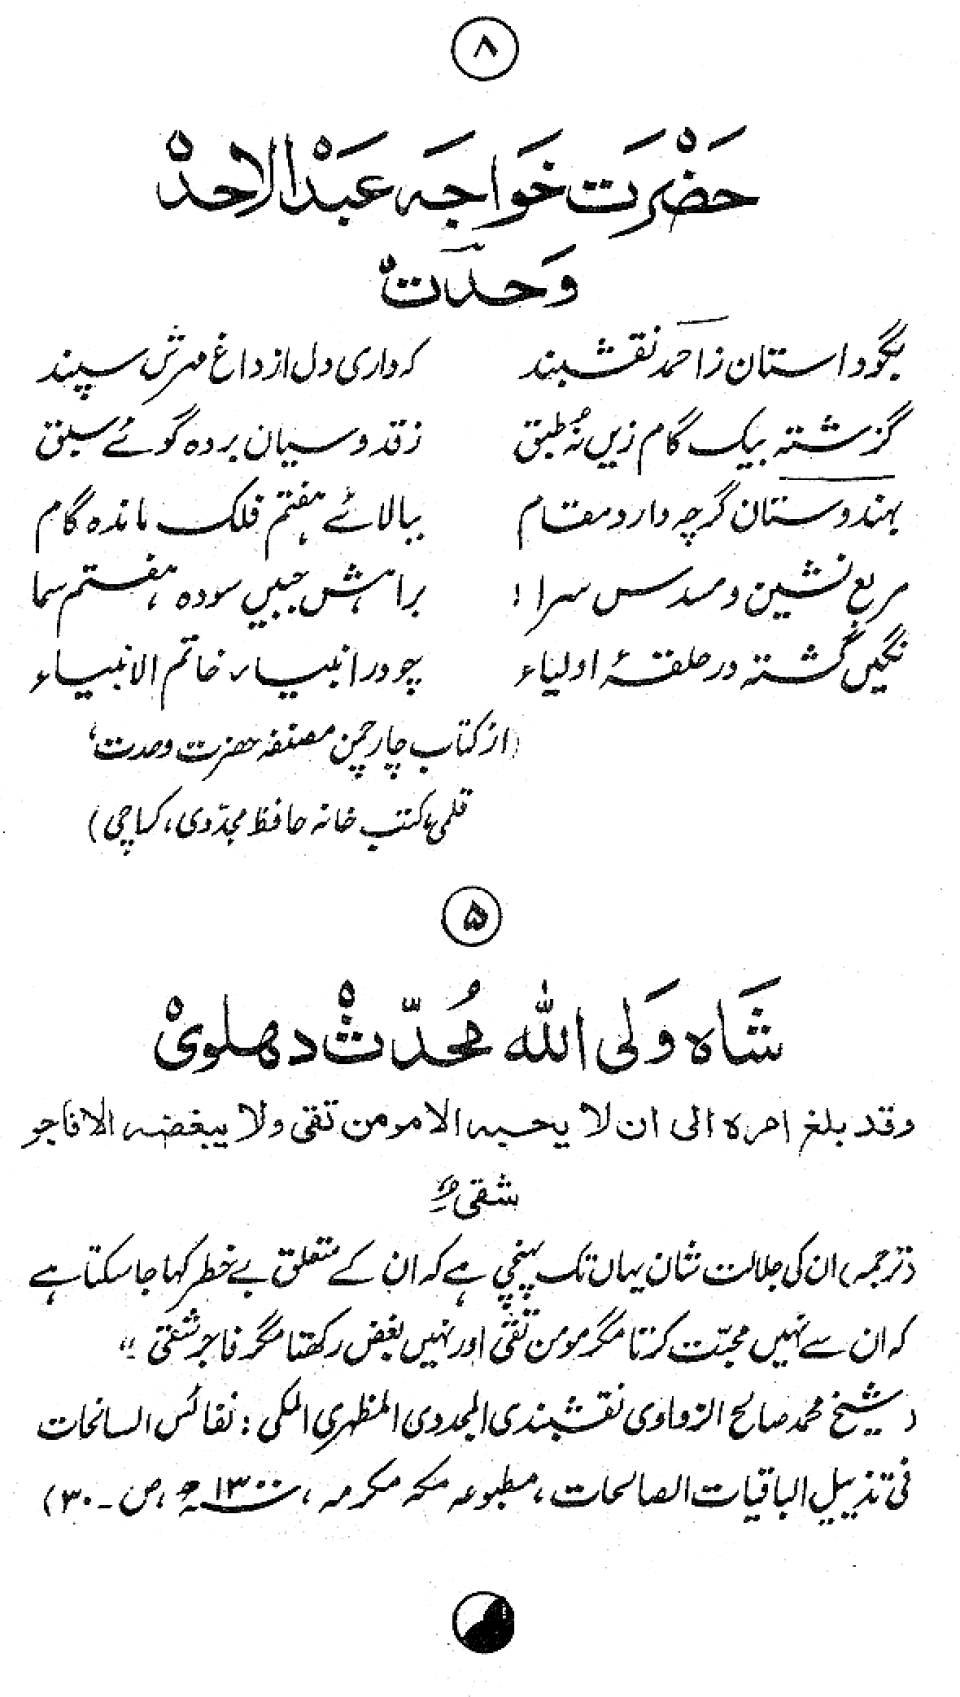 ۸
حَضْرَت خَواجَہ عَبْدالاحدؒ
وَحدتؒ
بگو داستان ز احمد نقشبند کہ داری دل از داغ مہرش سپند
گزشتہ بیک گام زیں نُہ طبق ز قدوسیان بردہ گوئے سبق
بہندوستان گرچہ دارد مقام ببالائے ہفتم فلک ماندہ گام
مربع نشین و مسدس سرا ! براہش جبیں سودہ ہفتم سما
نگیں گشتہ در حلقۂ اولیاء چو در انبیاء خاتم الانبیاء
(از کتاب چارچمن مصنفہ حضرت وحدت،
قلمی، کتب خانہ حافظ مجدّدی، کراچی)
۵
شَاہ وَلی اللہ مُحدّثؒ دھلویؒ
وقد بلغ امرہ الی ان لا یحبہ الا مومن تقی ولا یبغضہ الا فاجر
شقی
(ترجمہ) ان کی جلالت شان یہاں تک پہنچی ہے کہ ان کے متعلق بے خطر کہا جا سکتا ہے
کہ ان سے نہیں محبّت کرتا مگر مومن تقی اور نہیں بغض رکھتا مگر فاجر شقی "
(شیخ محمد صالح الزواوی نقشبندی المجددی المظہری المکی : نفائس السانحات
فی تذییل الباقیات الصالحات، مطبوعہ مکہ مکرمہ، ۱۳۰۰ھ، ص ۔ ۳۰)